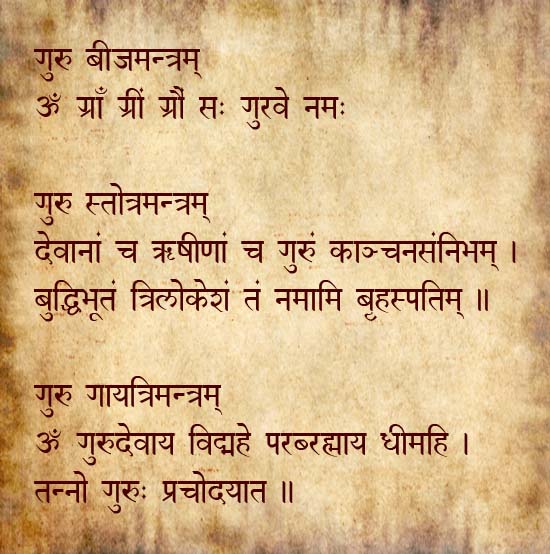 गुरु बीजमन्त्रम्
ॐ ग्राँ ग्रीं ग्रौं सः गुरवे नमः
गुरु स्तोत्रमन्त्रम्
देवानां च ऋषीणां च गुरुं काञ्चनसंनिभम् ।
बुद्धिभूतं त्रिलोकेशं तं नमामि बृहस्पतिम् ॥
गुरु गायत्रिमन्त्रम्
ॐ गुरुदेवाय विद्महे परब्रह्माय धीमहि ।
तन्नो गुरुः प्रचोदयात ॥